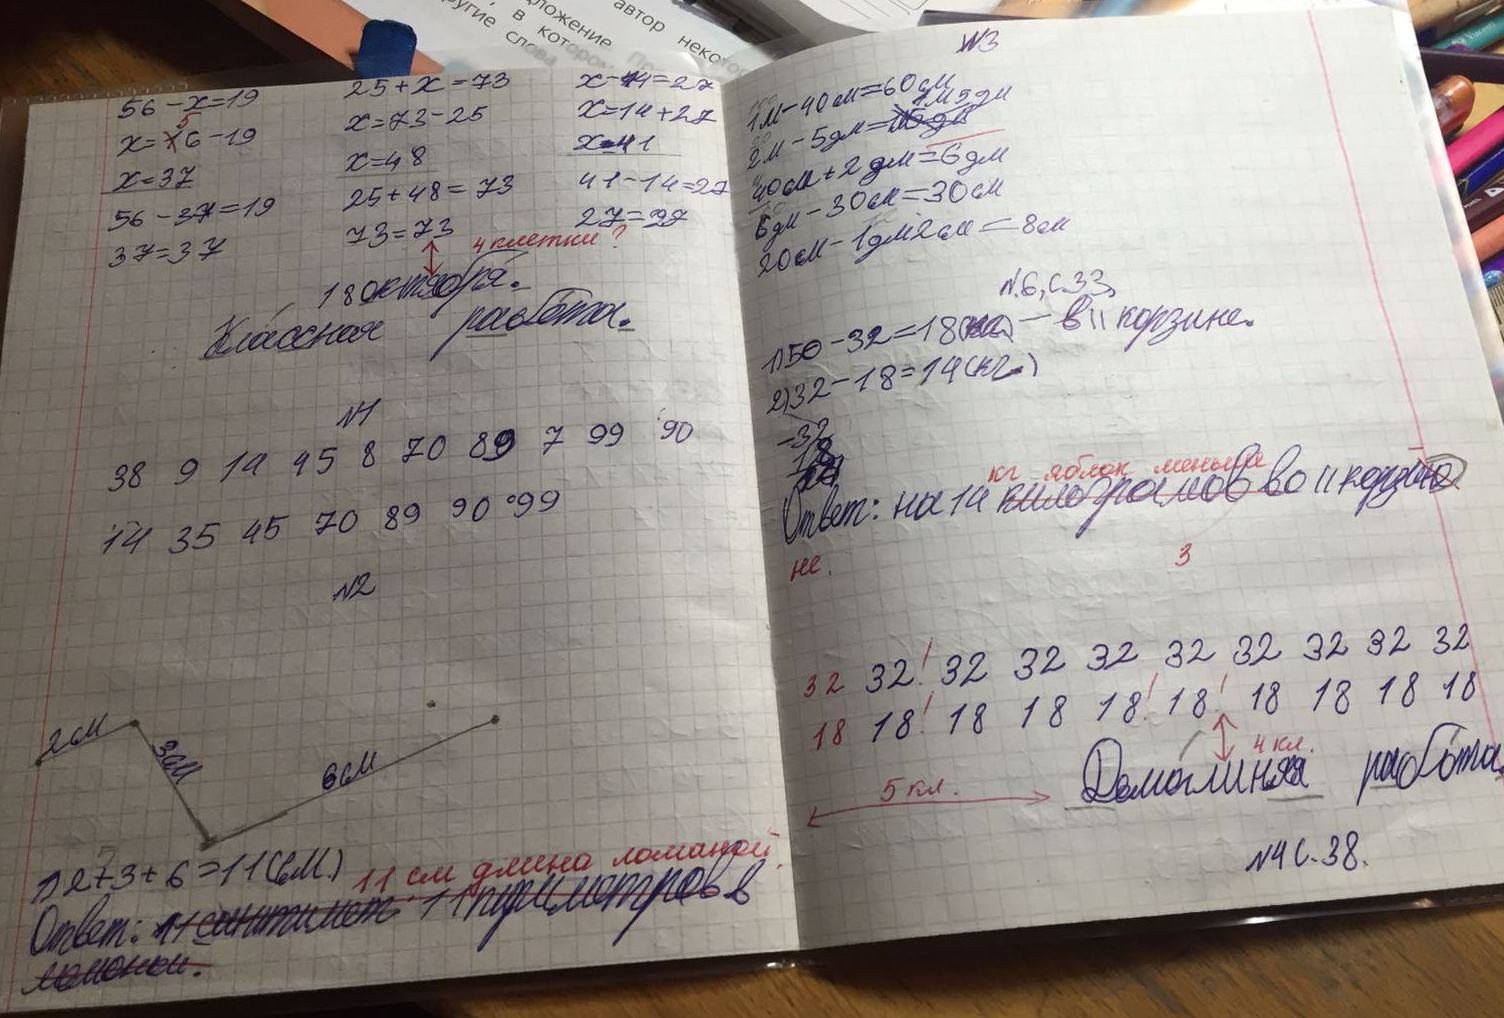 автор неко
дложение
, в котором
ругие слова
56-x=19
5
x=76-19
x=37
56-37=19
37=37
25+x=73
x=73-25
x=48
25+48=73
73=73
x-14=27
x=14+27
x=41
41-14=27
27=27
4 клетки?
18 октября.
Классная работа.
N1
38 9 14 45 8 70 89 7 99 90
14 35 45 70 89 90 99
N2
2см
3см
6см
1)2+3+6=11(см.)
11 см длина ломаной.
Ответ: 11 сантимет 11 периметров в
ломаной.
N3
1м-40см=60см
1м5дм
2м-5дм=15дм
40см+2дм=6дм
6дм-30см=30см
20см-1дм2см=8см
N.6, с.33,
1)50-32=18(кг) - в II корзине.
2)32-18=14(кг.)
-32
18
кг яблок меньше
Ответ: на 14 килограмов во II корзине
не.
3
32 32! 32 32 32 32 32 32 32 32
18 18! 18 18 18! 18! 18 18 18 18
4 кл.
5 кл.
Домашняя работа.
N4 С.38.